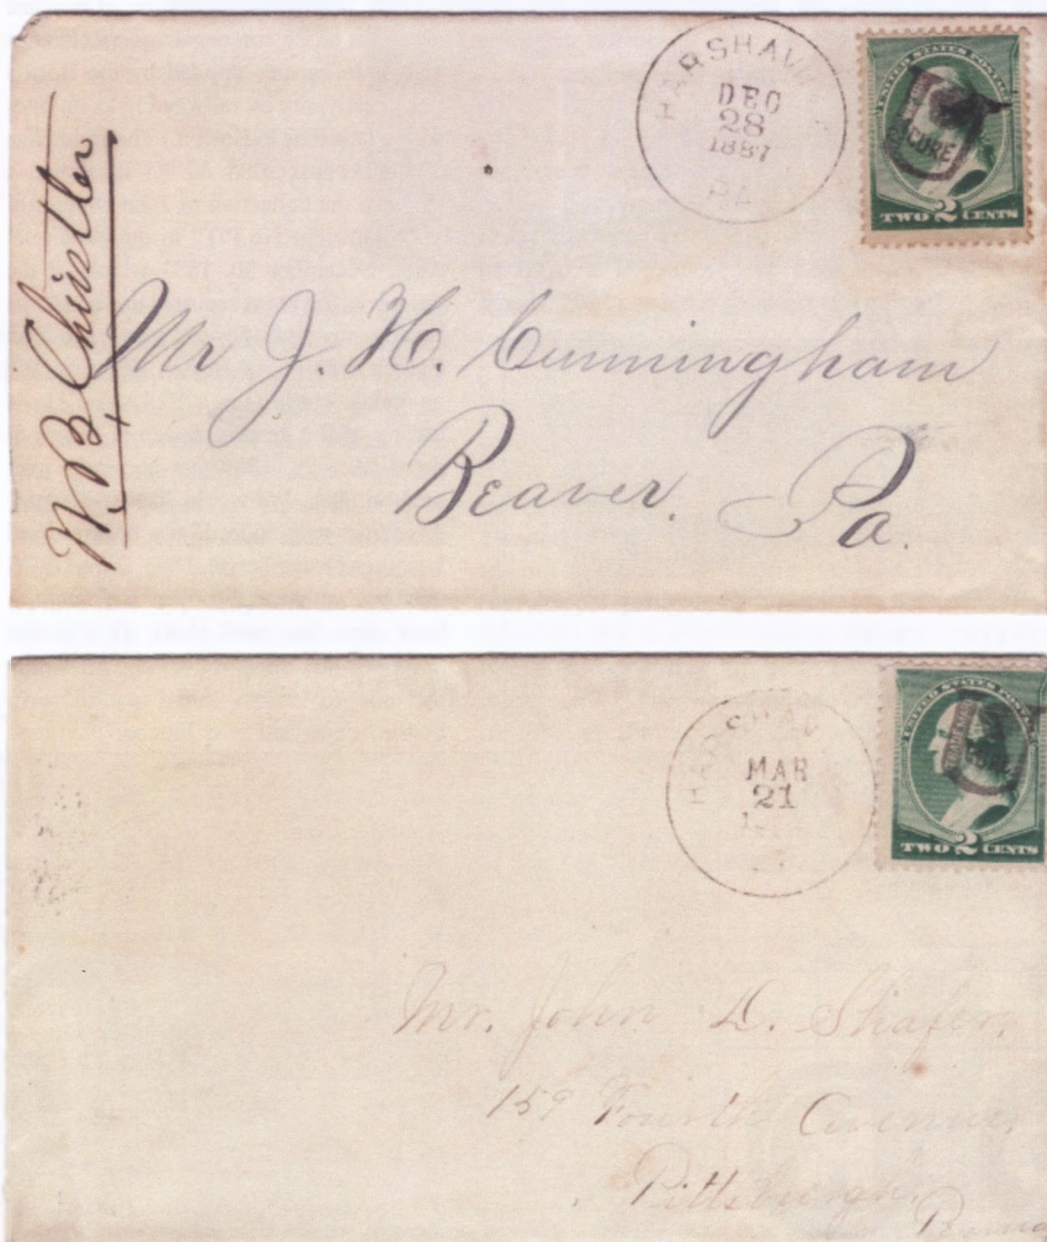 HARSHAW
DEC
28
1887
PA
UNITED STATES POSTAGE
CURE
TWO 2 CENTS
W B, Christler
Mr J. H. Cunningham
Beaver. Pa.
HARSHAW
MAR
21
UNITED STATES POSTAGE
TRADE MARK
CURE
TWO 2 CENTS
Mr. John D. Shafer,
159 Fourth Avenue
Pittsburgh,
Penna